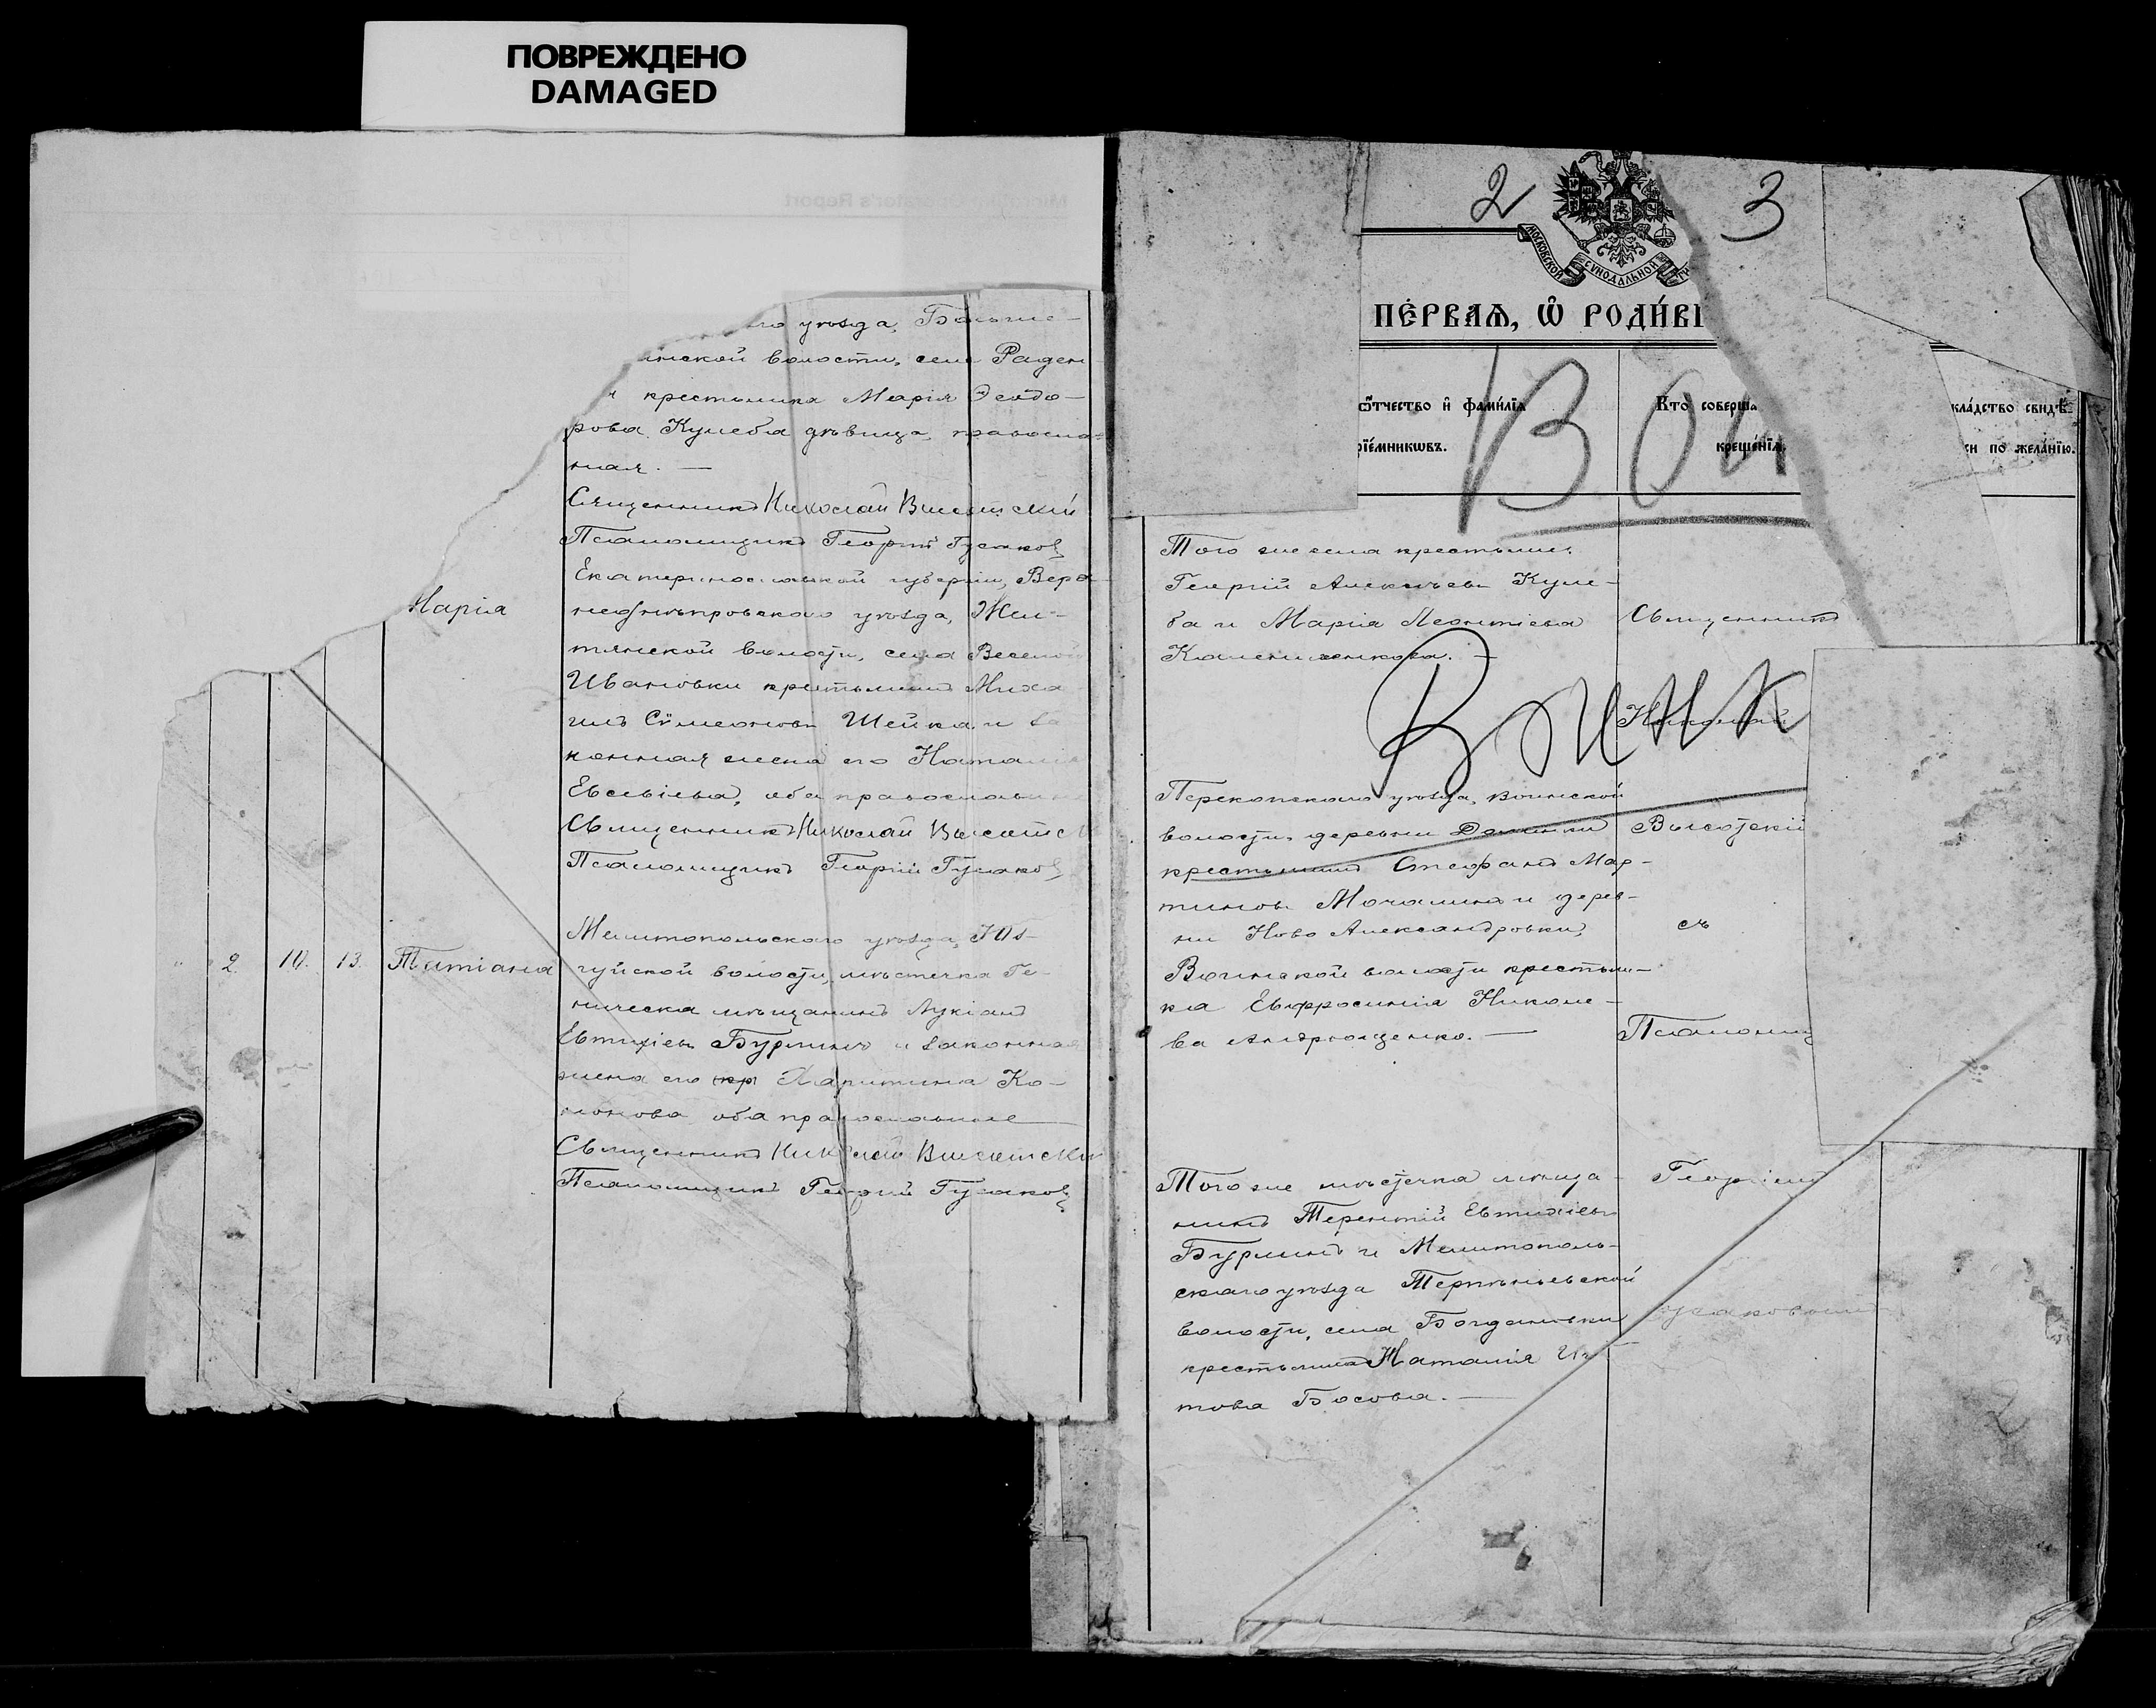 ПОВРЕЖДЕНО
DAMAGED
уѣзда, Больше-
инской волости, села Раден
крестьянка Марія Ѳеодо-
рова Кулеба дѣвица, правосла-
ная. —
Священникъ Николай Высотскій
Псаломщикъ Георгій Гусаковъ
Марія
Екатеринославской губерніи, Верх-
неднѣпровскаго уѣзда, Жел-
тянской волости, села Веселой
Ивановки крестьянинъ Миха
илъ Сѵмеоновъ Шейка и за
конная жена его Наталія
Евсевіева, оба православн
Священникъ Николай Высотск
Псаломщикъ Георгій Гусаковъ
2. 10. 13. Татіана
Мелитопольскаго уѣзда, Юз-
куйской волости, мѣстечка Ге-
ническа мѣщанинъ Лукіанъ
Евтихіевъ Бурлинъ и законная
жена его Харитина Ко-
нонова оба православные
Священникъ Николай Высотскій
Псаломщикъ Георгій Гусаковъ
2 3
МОСКОВСКОЙ СѴНОДАЛЬНОЙ ТѴ
ПЕ́РВАѦ, Ѽ РОДИ́ВШ
ѻ҆́тчество и҆ фами́лїѧ
рїе́мникѡвъ.
Кто соверша
креще́нїѧ.
кла́дство свидѣ́
си по жела́нїю.
Вои
Того же села крестьяне
Георгій Алексѣевъ Куле-
ба и Марія Леонтіева
Священникъ
Николай
Перекопскаго уѣзда, Воинской
волости, деревни
крестьянинъ Стефанъ Мар-
тиновъ Мочалинъ и дерев-
ни Ново Александровки,
Воинской волости крестьян-
ка Евфросинія Николае-
ва Андрющенко. —
Высотскій
съ
Псаломщ
Того же мѣстечка мѣща-
нинъ Терентій Евтихіевъ
Бурлинъ и Мелитополь-
скаго уѣзда Терпѣньевской
волости, села Богдановки
крестьянка Наталія
това Босова. —
Георгіемъ
усаковымъ